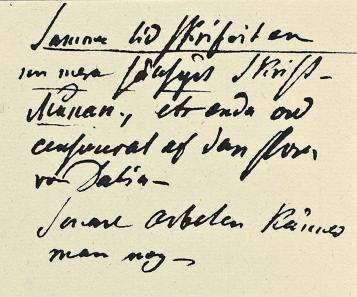 Samma tid skrifvit en
än mera sällsynt skrift -
Månan., ett enda ord
censurerat af den store
von Dalin -
Senare arbeten känner
man nog -